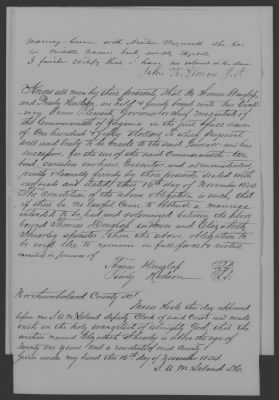 marriage license with Newton Maxwell she has
no middle name but simply Elizabeth
I further certify that I have no interest in this claim
John H. Moore J.P.
Know all men by these presents, That We Thomas Dunaway
and Presly Hudson are held & firmly bound unto his Excellency
James Pleasants Governor or chief magistrate of
the Commonwealth of Virginia in the just & full sum
of One hundred & fifty dollars to which payment
well and truly to be made to the said Governor and his
successors, for the use of the said Commonwealth. We
bind ourselves our heirs Executors and administrators
jointly & severally firmly by these presents, sealed with
our seals and dated this 16th day of November 1824
The Condition of the above obligation is such, that
if there be no lawful cause to obstruct a marriage
intended to be had and solemnized between the above
bound Thomas Dunaway and Elizabeth
spinster then the above obligation to
be void else to remain in full force & virtue
executed in presence of
Thomas
Presly Hudson
Northumberland County Sct
Hudson this day appeared
before me J. A. McLeland deputy Clerk of said Court and made
oath on the holy evangelist of almighty God, that the
within named Elizabeth is above the age of
twenty one years and a resident of said County
Given under my hand this 16th day of November 1824